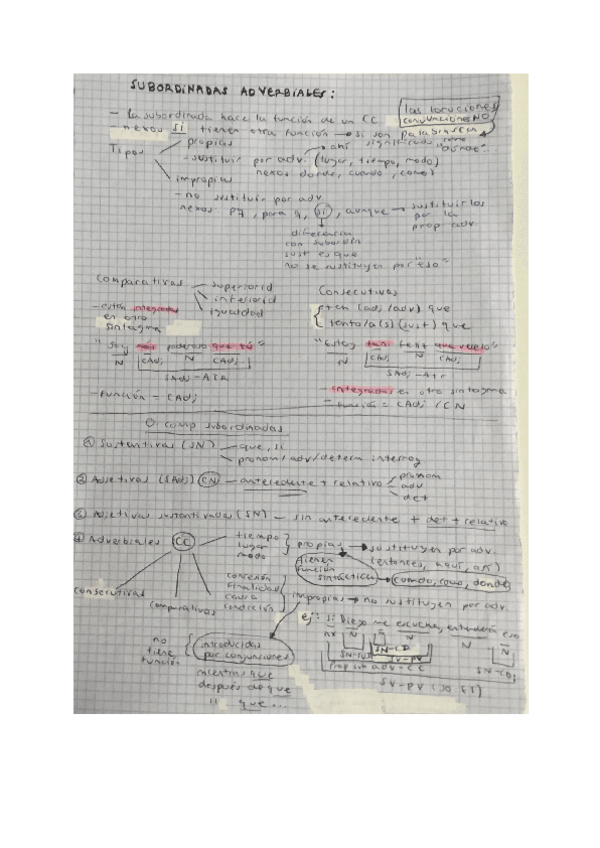 SUBORDINADAS ADVERBIALES:
- la subordinada hace la función de un CC
las locuciones
conjunciones NO
- nexos si tienen otra función → si son palabras con
significado como
"donde"...
Tipos
propias
- sustituir por adv. (lugar, tiempo, modo)
ahí
nexos donde, cuando, como)
impropias
- no sustituir por adv
nexos pq, para q, si, aunque → sustituirlos
por la
prop adv.
diferencia
con subordin
sust es que
no se sustituyen por "eso"
Comparativas
superiorid
inferiorid
igualdad
- están integradas
en otro
sintagma
"Soy más poderoso que tú"
N CAdj N CAdj
SAdj - Atr
- función = CAdj
Consecutivas
tan (adj/adv) que
tanto/a(s) (sust) que
"Estoy tan que vuelo"
N CAdj N CAdj
SAdj - Atr
- integradas en otro sintagma
- función = CAdj / CN
O. comp subordinadas
① Sustantivas (SN)
que, si
pronom/adv/determ interrog
② Adjetivas (SAdj) CN - antecedente + relativo
pronom
adv
det
③ Adjetivas sustantivadas (SN) - sin antecedente + det + relativo
④ Adverbiales CC
tiempo
lugar
modo
propias → sustituyen por adv.
(entonces, aquí, así)
tienen
función
sintáctica
cuando, como, donde
consecutivas
comparativas
concesión
finalidad
causa
condición
impropias → no sustituyen por adv.
no
tiene
función
introducidas
por conjunciones
mientras que
después de que
" que ...
ej: si Diego me escucha, entenderá eso
nx N N N N N
SN-CD
SN-SUJ SV-PV SN-CD
Prop sub adv-CC
SV-PV